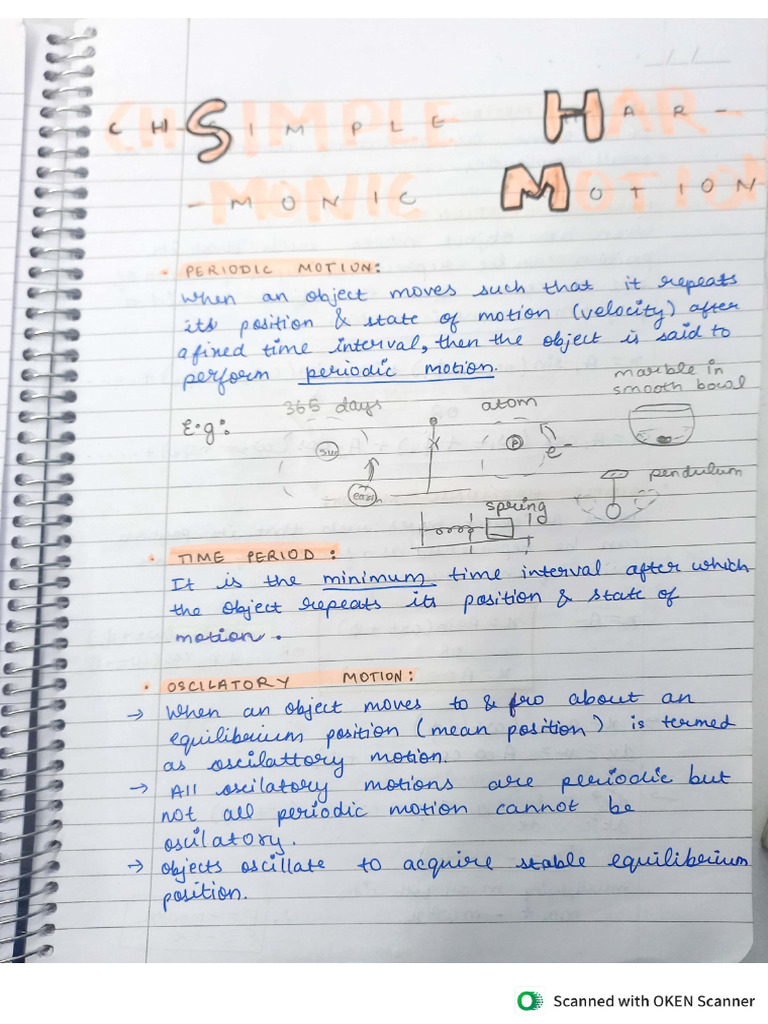 CH-SIMPLE HAR-
-MONIC MOTION
• PERIODIC MOTION:
When an object moves such that it repeats
its position & state of motion (velocity) after
a fixed time interval, then the object is said to
perform periodic motion.
marble in
smooth bowl
E.g:
365 days
atom
sun
P
e-
earth
pendulum
spring
• TIME PERIOD:
It is the minimum time interval after which
the object repeats its position & state of
motion.
• OSCILATORY MOTION:
→ When an object moves to & fro about an
equilibrium position (mean position) is termed
as oscilattory motion.
→ All oscilatory motions are periodic but
not all periodic motion cannot be
oscilatory.
→ Objects oscillate to acquire stable equilibrium
position.
Scanned with OKEN Scanner